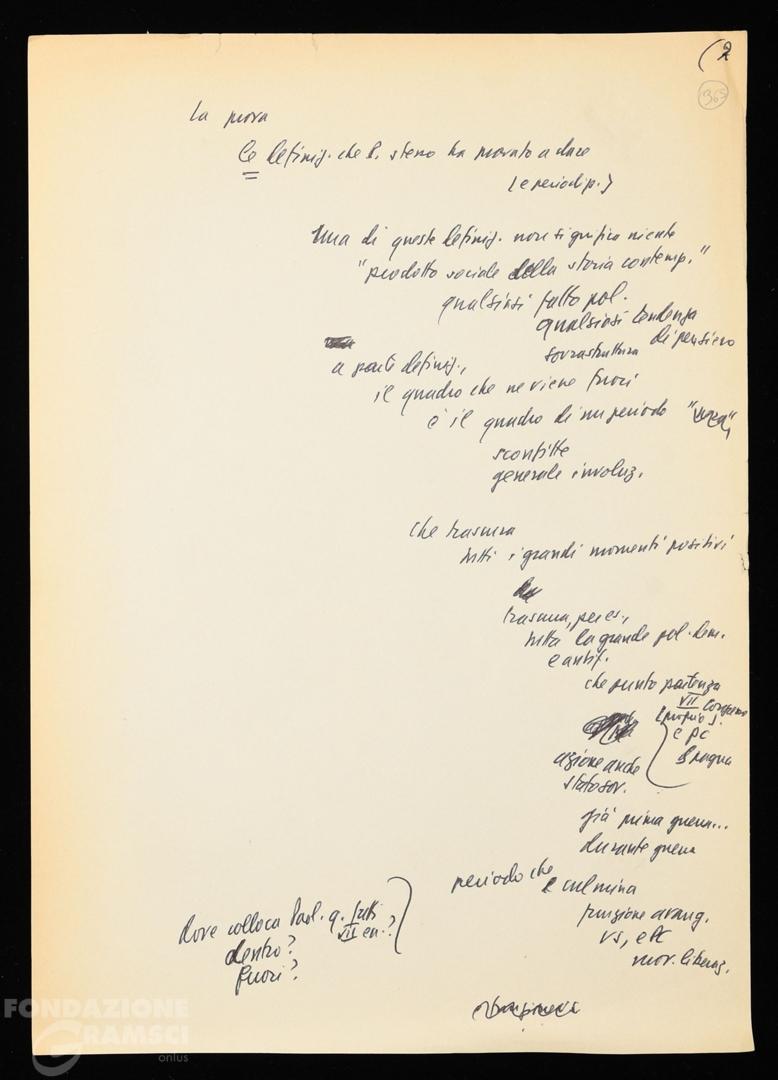 (2
365
La prova
le definiz. che P. stesso ha provato a dare
(e periodiz.)
Una di queste definiz. non significa niente
"prodotto sociale della storia contemp."
qualsiasi fatto pol.
qualsiasi tendenza
di pensiero
sovrastruttura
a parte definiz.,
il quadro che ne viene fuori
è il quadro di un periodo
sconfitte
generale involuz.
che trascura
tutti i grandi momenti positivi
trascura, per es.,
tutta la grande pol. dem.
e antif.
che punto partenza
VII Congresso
e pc
Spagna
azione anche
stato sov.
già prima guerra...
durante guerra
periodo che
culmina
funzione avang.
US, e PC
mov. liberaz.
dove colloca Paol. q. fatti
VII cn.?
dentro?
fuori?
FONDAZIONE
GRAMSCI
onlus